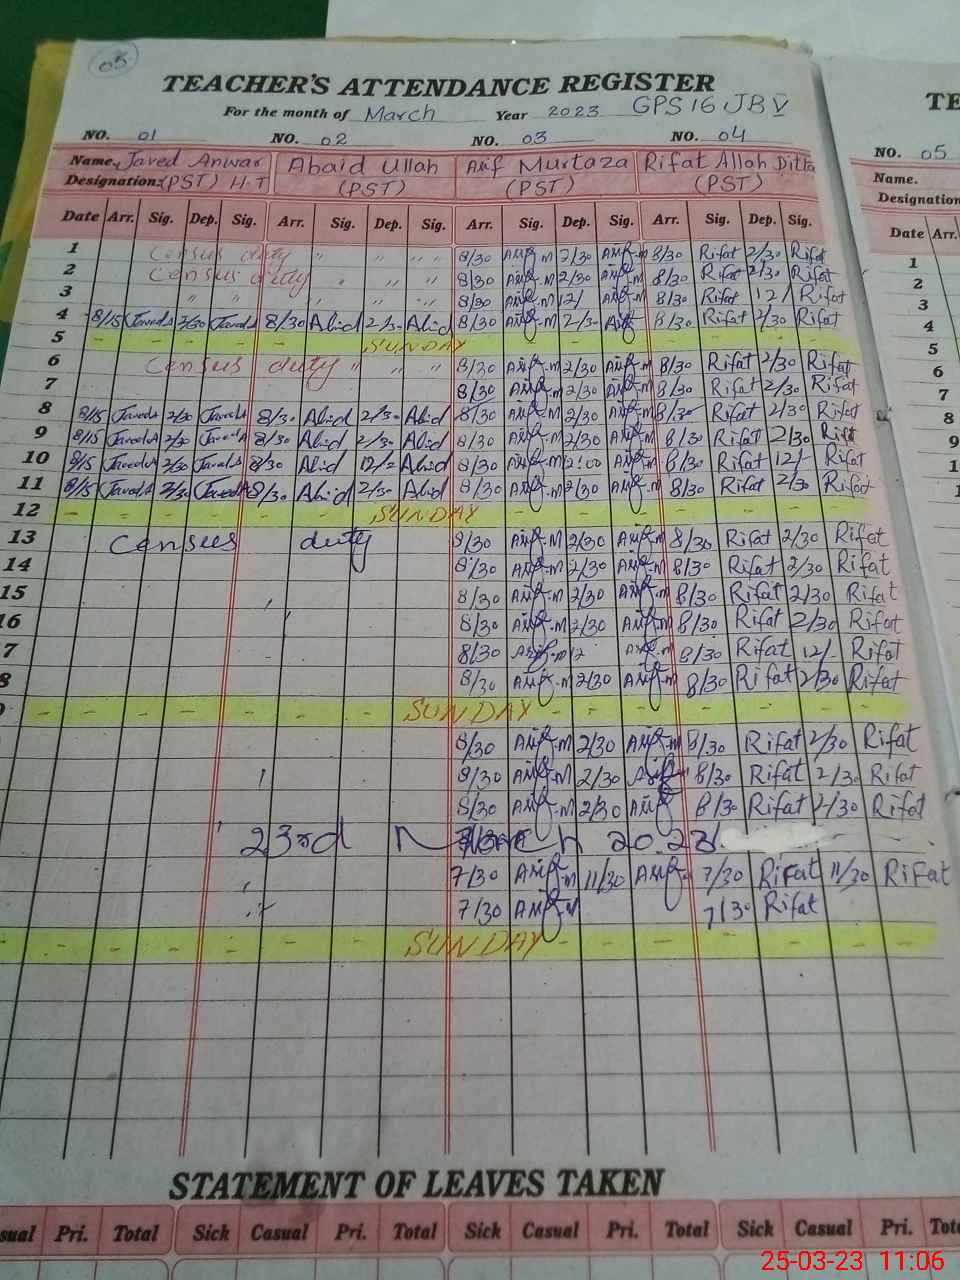 05
TEACHER'S ATTENDANCE REGISTER
For the month of March Year 2023 GPS 16 JB V
NO. 01 NO. 02 NO. 03 NO. 04
Name. Javed Anwar Abaid Ullah Arif Murtaza Rifat Allah Ditta
Designation: (PST) H.T (PST) (PST) (PST)
Date Arr. Sig. Dep. Sig. Arr. Sig. Dep. Sig. Arr. Sig. Dep. Sig. Arr. Sig. Dep. Sig.
1 Census duty 〃 〃 〃 〃 8/30 Arif-m 2/30 Arif-m 8/30 Rifat 2/30 Rifat
2 Census duty 〃 〃 〃 〃 8/30 Arif-m 2/30 Arif-m 8/30 Rifat 2/30 Rifat
3 〃 〃 〃 〃 〃 〃 8/30 Arif-m 12/ Arif-m 8/30 Rifat 12/ Rifat
4 8/15 Javed A 2/30 Javed A 8/30 Abid 2/30 Abid 8/30 Arif-m 2/30 Arif 8/30 Rifat 2/30 Rifat
5 - - - - - SUNDAY - - - - - -
6 Census duty 〃 〃 〃 8/30 Arif-m 2/30 Arif-m 8/30 Rifat 2/30 Rifat
7 8/30 Arif-m 2/30 Arif-m 8/30 Rifat 2/30 Rifat
8 8/15 Javed A 2/30 Javed A 8/30 Abid 2/30 Abid 8/30 Arif-m 2/30 Arif-m 8/30 Rifat 2/30 Rifat
9 8/15 Javed A 2/30 Javed A 8/30 Abid 2/30 Abid 8/30 Arif-m 2/30 Arif-m 8/30 Rifat 2/30 Rifat
10 8/15 Javed A 2/30 Javed A 8/30 Abid Abid 8/30 Arif-m 12:00 Arif-m 8/30 Rifat 12/- Rifat
11 8/15 Javed A 2/30 Javed A 8/30 Abid 2/30 Abid 8/30 Arif-m 2/30 Arif-m 8/30 Rifat 2/30 Rifat
12 - - - - - SUNDAY - - - - - -
13 Census duty 8/30 Arif-M 2/30 Arif-m 8/30 Rifat 2/30 Rifat
14 8/30 Arif-m 2/30 Arif-m 8/30 Rifat 2/30 Rifat
15 8/30 Arif-m 2/30 Arif-m 8/30 Rifat 2/30 Rifat
16 8/30 Arif-M 2/30 Arif-m 8/30 Rifat 2/30 Rifat
7 8/30 Arif-m 12 Arif-m 8/30 Rifat 12/- Rifat
8 8/30 Arif-M 2/30 Arif-m 8/30 Rifat 2/30 Rifat
- - - - - SUNDAY - - - - - -
8/30 Arif-M 2/30 Arif-m 8/30 Rifat 2/30 Rifat
8/30 Arif-M 2/30 Arif 8/30 Rifat 2/30 Rifat
8/30 Arif-M 2/30 Arif 8/30 Rifat 2/30 Rifat
23rd March 2023
7/30 Arif-m 11/30 Arif 7/30 Rifat 11/30 Rifat
7/30 Arif-M 7/30 Rifat
- - - - - SUNDAY - - - - - -
STATEMENT OF LEAVES TAKEN
sual Pri. Total Sick Casual Pri. Total Sick Casual Pri. Total Sick Casual Pri. Tot
TE
NO. 05
Name.
Designation
Date Arr.
1
2
3
4
5
6
7
8
9
1
1
25-03-23 11:06